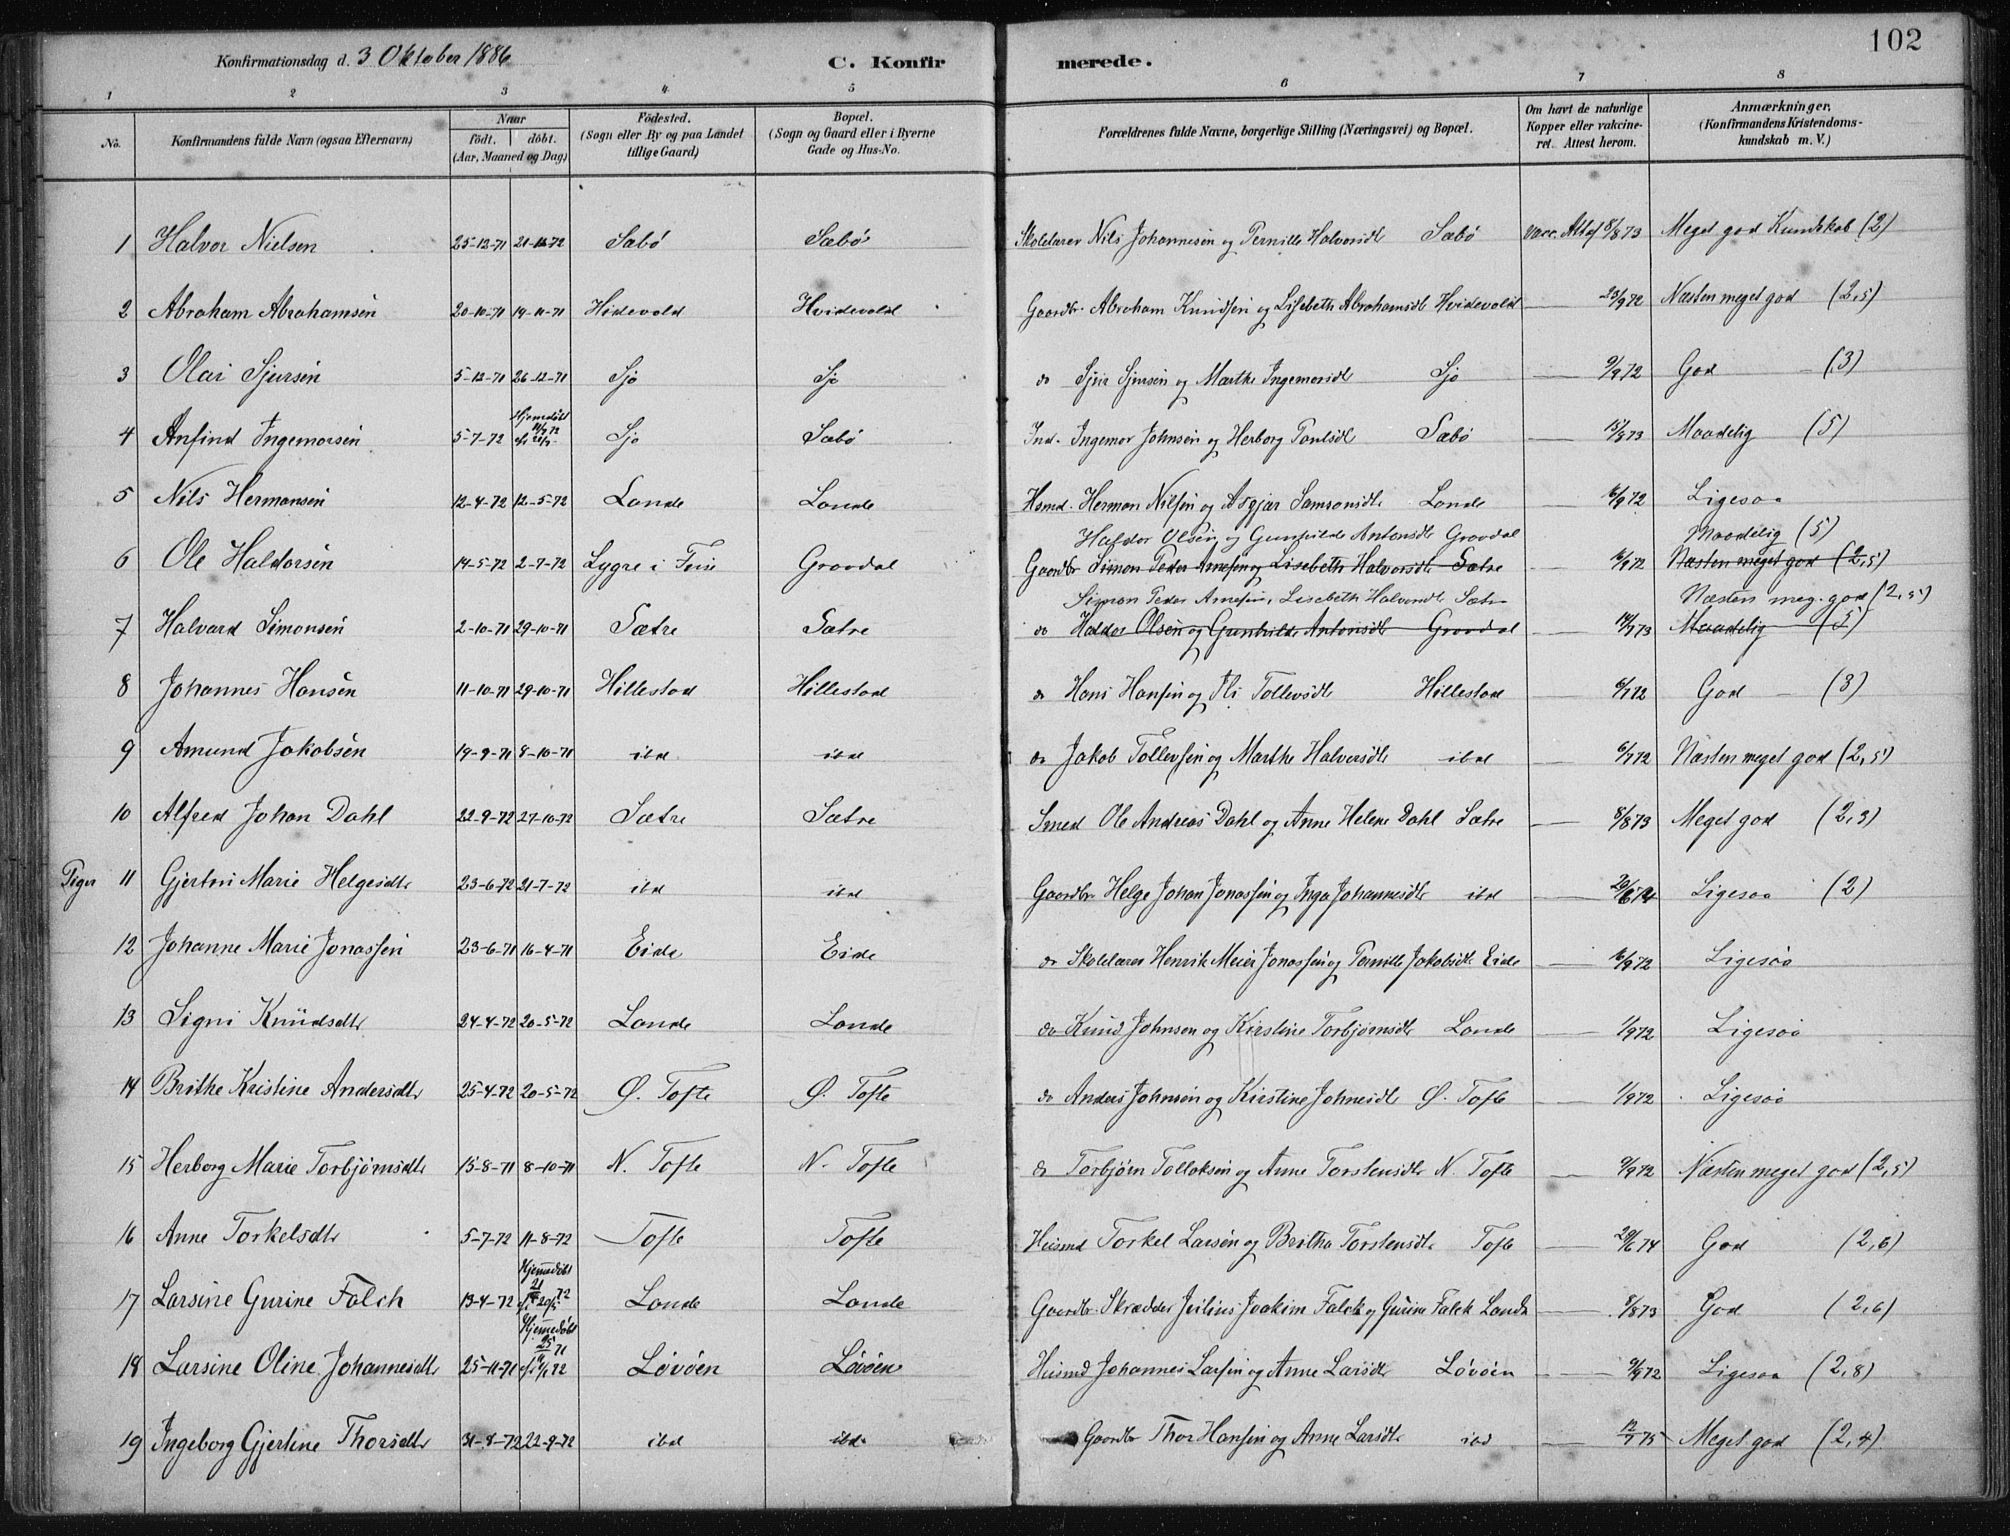 102
Konfirmationsdag d. 3 Oktober 1886
C. Konfirmerede.
1 2 3 4 5 6 7 8
No.
Konfirmandens fulde Navn (ogsaa Efternavn)
Naar
født. døbt.
(Aar, Maaned og Dag)
Fødested.
(Sogn eller By og paa Landet tillige Gaard)
Bopæl.
(Sogn og Gaard eller i Byerne Gade og Hus-No.
Forældrenes fulde Navne, borgerlige Stilling (Næringsvei) og Bopæl.
Om havt de naturlige Kopper eller vakcineret. Attest herom.
Anmærkninger.
(Konfirmandens Kristendomskundskab m. V.)
1 Halvor Nielsen 25-12-71 21-12-72 Sæbø Sæbø Skolelærer Nils Johannesen og Pernille Halvorsdtr Sæbø Vacc. Attest 8/8 73 Meget god Kundskab (2)
2 Abraham Abrahamsen 20-10-71 19-11-71 Hidevold Hvidevold Gaardbr. Abraham Knudsen og Lisebeth Abrahamsdtr Hvidevold — 23/9 72 Næsten meget god (2,5)
3 Olai Sjursen 5-12-71 26-12-71 Sjo Sjo do Sjur Sjursen og Marthe Ingemorsdtr Sjo — 9/9 72 God — (3)
4 Anfind Ingemorsen 5-7-72 Hjemdøbt 14/7 72 Sjo Sæbø Ind. Ingemor Johnsen og Herborg Poulsdtr Sæbø — 15/8 73 Maadelig (5)
5 Nils Hermansen 12-4-72 12-5-72 Lande Lande Hsmd. Herman Nilsen og Asgjær Samsonsdtr Lande — 16/9 72 Ligesaa
Haldor Olsen og Gunhilde Antonsdtr Graadal Maadelig (5)
6 Ole Haldorsen 14-5-72 2-7-72 Lygre i Graadal Gaardbr Simon Peder Arnesen og Lisebeth Halvorsdtr Sætre — 16/9 72 Næsten meget god (2,5)
Simon Peder Arnesen, Lisebeth Halvorsdtr Sætre Næsten meg. god (2,5)
7 Halvard Simonsen 2-10-71 29-10-71 Sætre Sætre do Haldor Olsen og Gunhilde Antonsdtr Graadal — 14/7 73 Maadelig (5)
8 Johannes Hansen 11-10-71 29-10-71 Hillestad Hillestad do Hans Hansen og Tollevsdtr Hillestad — 6/7 72 God — (3)
9 Amund Jakobsen 19-9-71 8-10-71 ibd ibd do Jakob Tollevsen og Marthe Halversdtr ibd — 6/7 72 Næsten meget god (2,5)
10 Alfred Johan Dahl 22-9-72 27-10-72 Sætre Sætre Smed Ole Andreas Dahl og Anne Helene Dahl Sætre — 8/8 73 Meget god (2,3)
Piger 11 Gjertrui Marie Helgesdtr 23-6-72 21-7-72 ibd ibd Gaardbr Helge Johan Jonassen og Inga Johannesdtr ibd — 20/6 74 Ligesaa (2)
12 Johanne Marie Jonassen 23-6-71 16-4-71 Eide Eide do Skolelærer Henrik Meier Jonassen og Pernille Jakobsdtr Eide — 16/9 72 Ligesaa
13 Signi Knudsdtr 24-4-72 20-5-72 Lande Lande do Knud Johnsen og Kirstine Torbjørnsdtr Lande — 1/9 72 Ligesaa
14 Brithe Kristine Andersdtr 25-4-72 20-5-72 Ø. Tofte Ø. Tofte do Anders Johnsen og Kirstine Johnesdtr Ø. Tofte — 1/9 72 Ligesaa
15 Herborg Marie Torbjørnsdtr 15-8-71 8-10-71 N. Tofte N. Tofte do Torbjørn Tollaksen og Anne Torstensdtr N. Tofte — 9/9 72 Næsten meget god (2,5)
16 Anne Torkelsdtr 5-7-72 11-8-72 Tofte Tofte Husmd Torkel Larsen og Britha Torstensdtr Tofte — 20/6 74 God (2,6)
17 Larsine Gurine Falch 13-4-72 Hjemmedøbt 21/4 72 20/5 Lande Lande Gaardbr. Skrædder Julius Joakim Falck og Gurine Falck Lande — 8/8 73 God (2,6)
18 Larsine Oline Johannesdtr 25-11-71 Hjemmedøbt 25/11 71 72 Løvøen Løvøen Husmd Johannes Larsen og Anne Larsdtr Løvøen — 9/9 72 Ligesaa (2,8)
19 Ingeborg Gjertine Thorsdtr 31-8-72 22-9-72 ibd ibd Gaardbr Thor Hansen og Anne Larsdtr ibd — 12/7 75 Meget god (2,4)